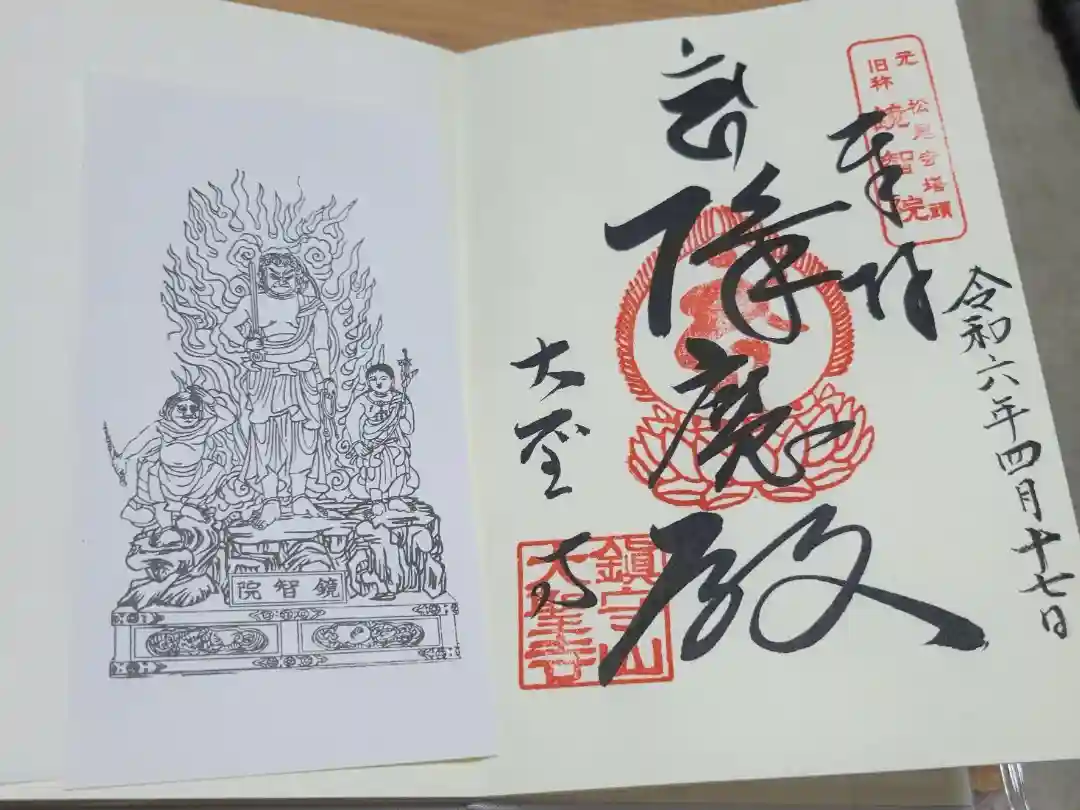 元 松尾塔頭
旧称 鏡智院
奉拝
令和六年四月十七日
降魔殿
大聖寺
鎮守山
大聖寺
鏡智院